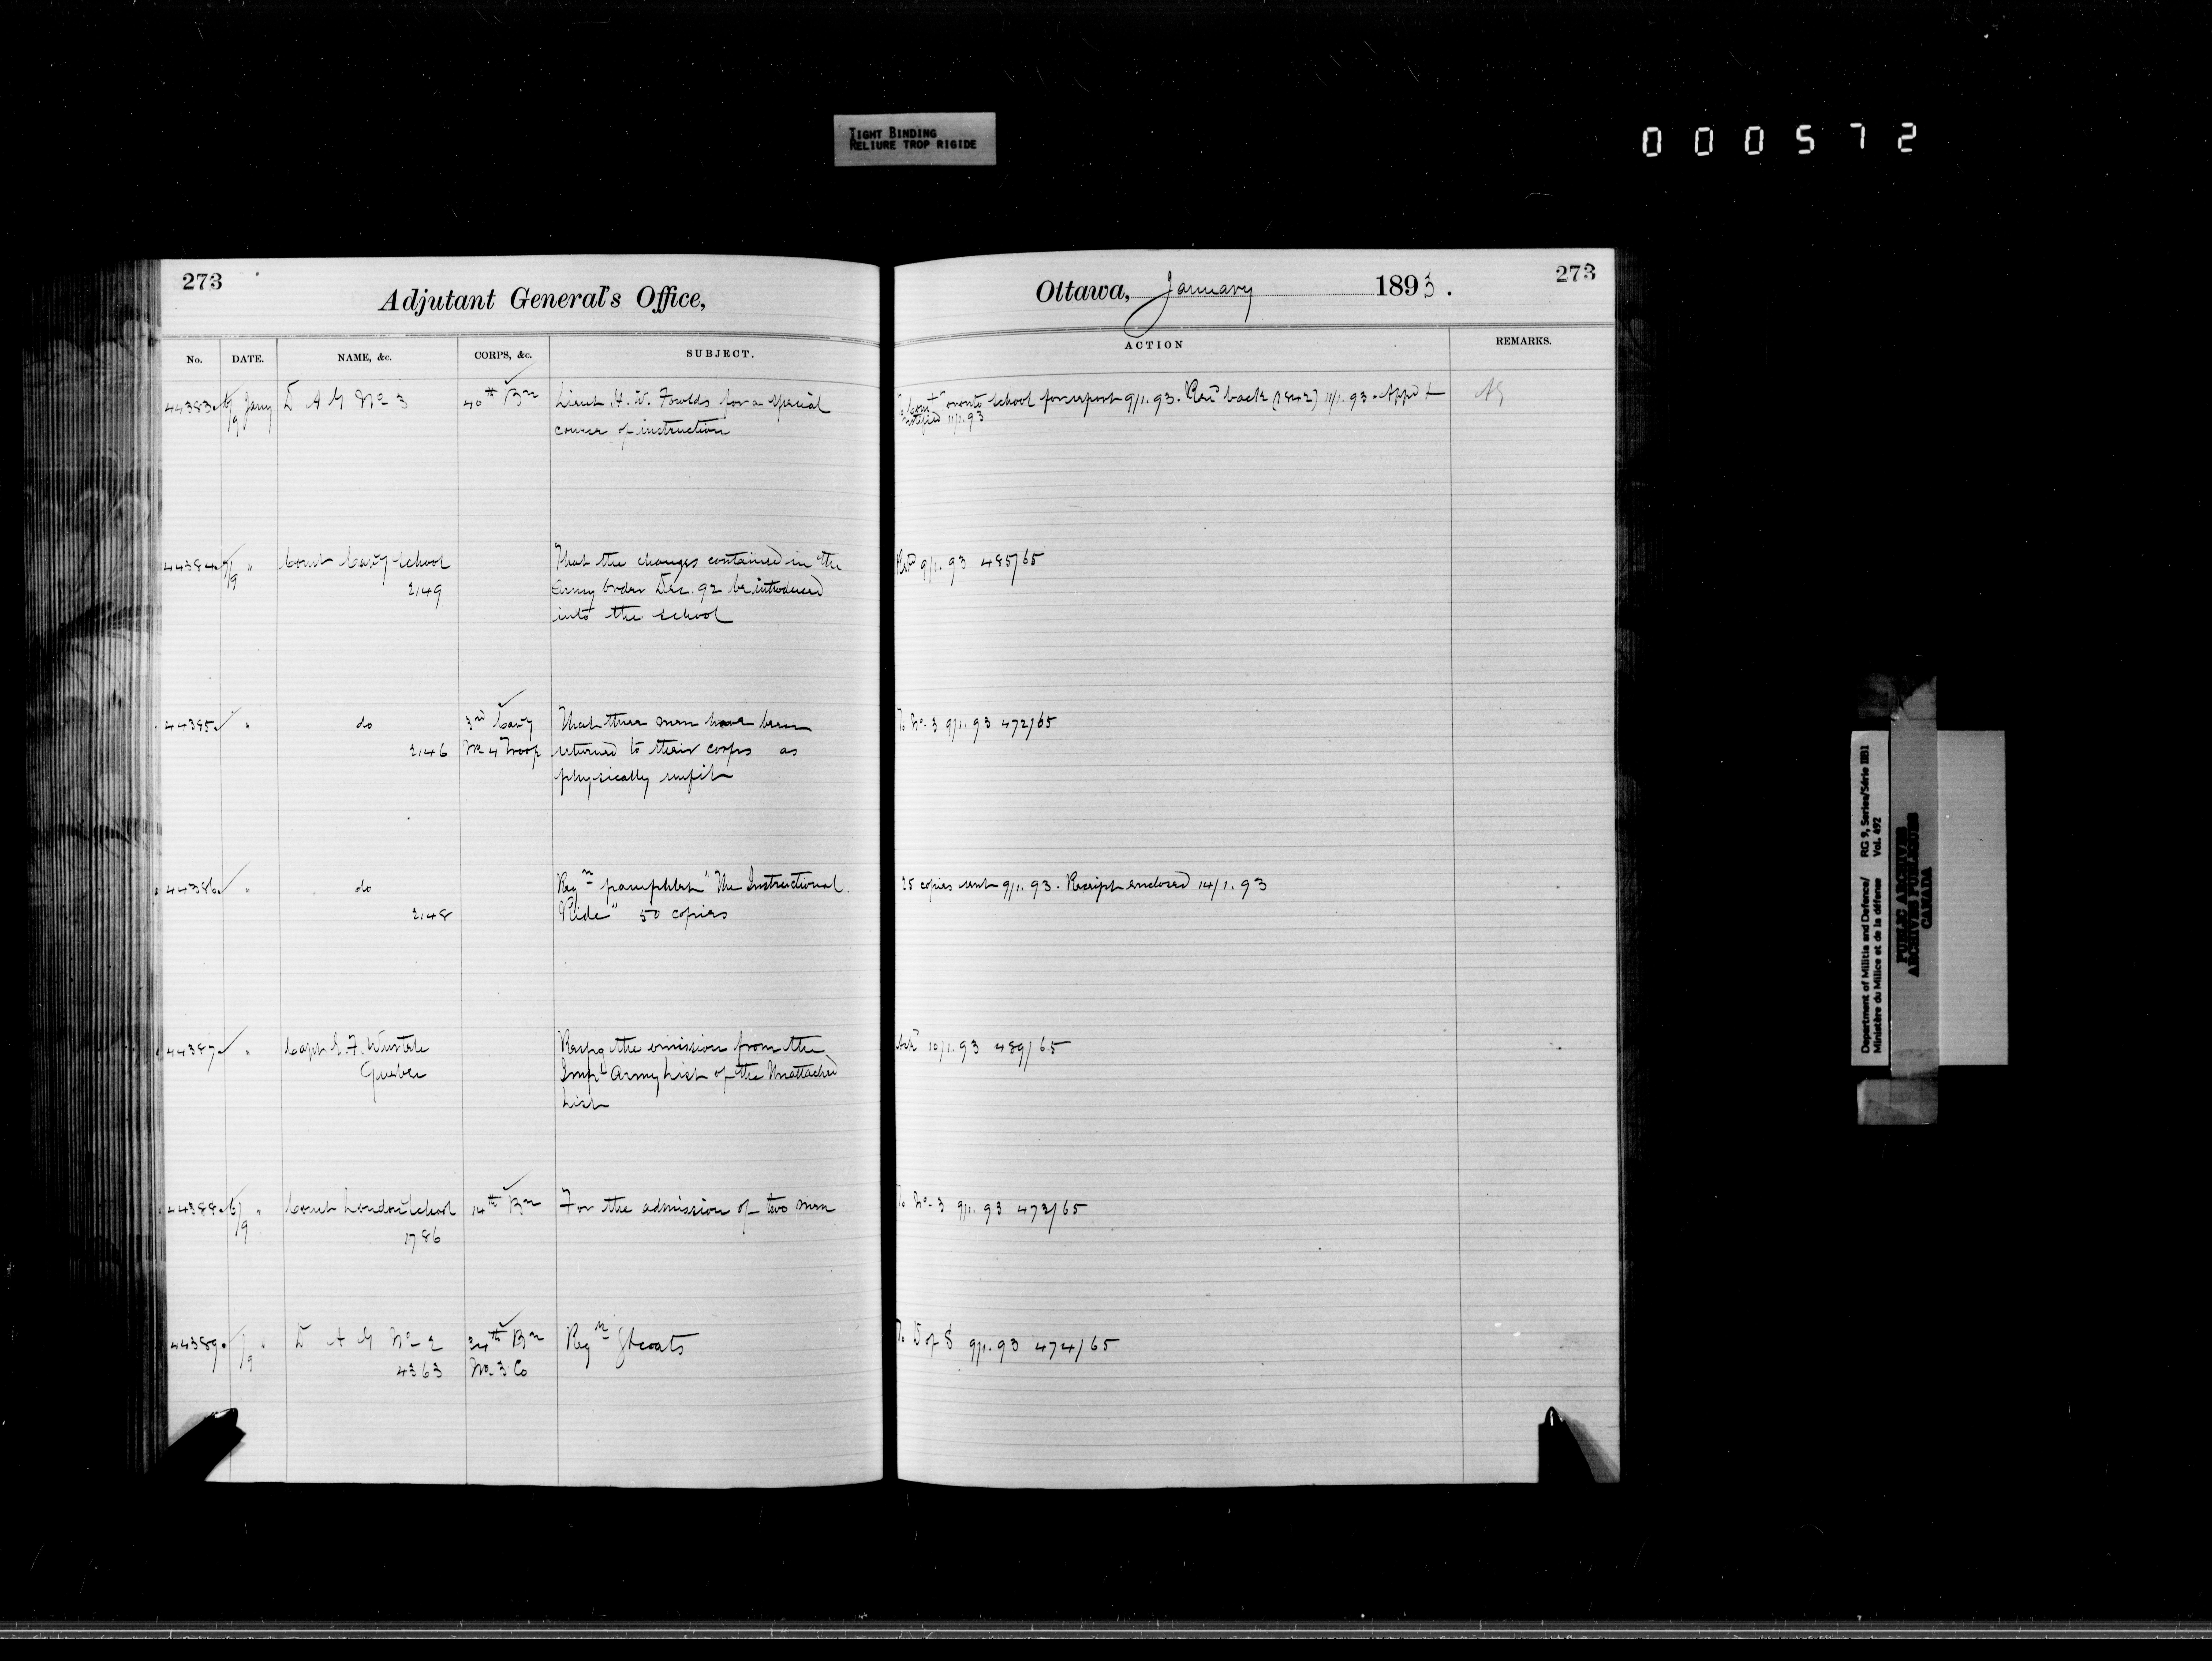 TIGHT BINDING
RELIURE TROP RIGIDE
000572
273
Adjutant General's Office,
No. DATE. NAME, &c. CORPS, &c. SUBJECT.
44383 6/9 Jany D A G No 3 40th Bn Lieut H. W. Fowlds for a special
course of instruction
44384 7/9 " Comt Cavy School That the changes contained in the
2149 Army Order Dec. 92 be introduced
into the school
44385 " do 3rd Cavy That three men have been
2146 No 4 Troop returned to their corps as
physically unfit
44386 " do Reqn pamphlet "The Instructional
2148 Ride" 50 copies
44387 " Capt E. F. Wurtele Respg the omission from the
Quebec Impl Army List of the Unattached
List
44388 6/9 " Comt London School 14th Bn For the admission of two men
1786
44389 7/9 " D A G No 2 34th Bn Reqn Gtcoats
4363 No 3 Co
Ottawa, January 1893.
273
ACTION REMARKS.
To Comt Toronto School for report 9/1.93. Recd back (1842) 11/1.93. Appd &
notified 11/1.93
9/1.93 485/65
To No. 3 9/1.93 472/65
25 copies sent 9/1.93. Receipt enclosed 14/1.93
Ack 10/1.93 489/65
To No. 3 9/1.93 473/65
To D of S 9/1.93 474/65
Department of Militia and Defence/ RG 9, Series/Série IIB1
Ministère du Milice et de la défense Vol. 492
PUBLIC ARCHIVES
ARCHIVES PUBLIQUES
CANADA